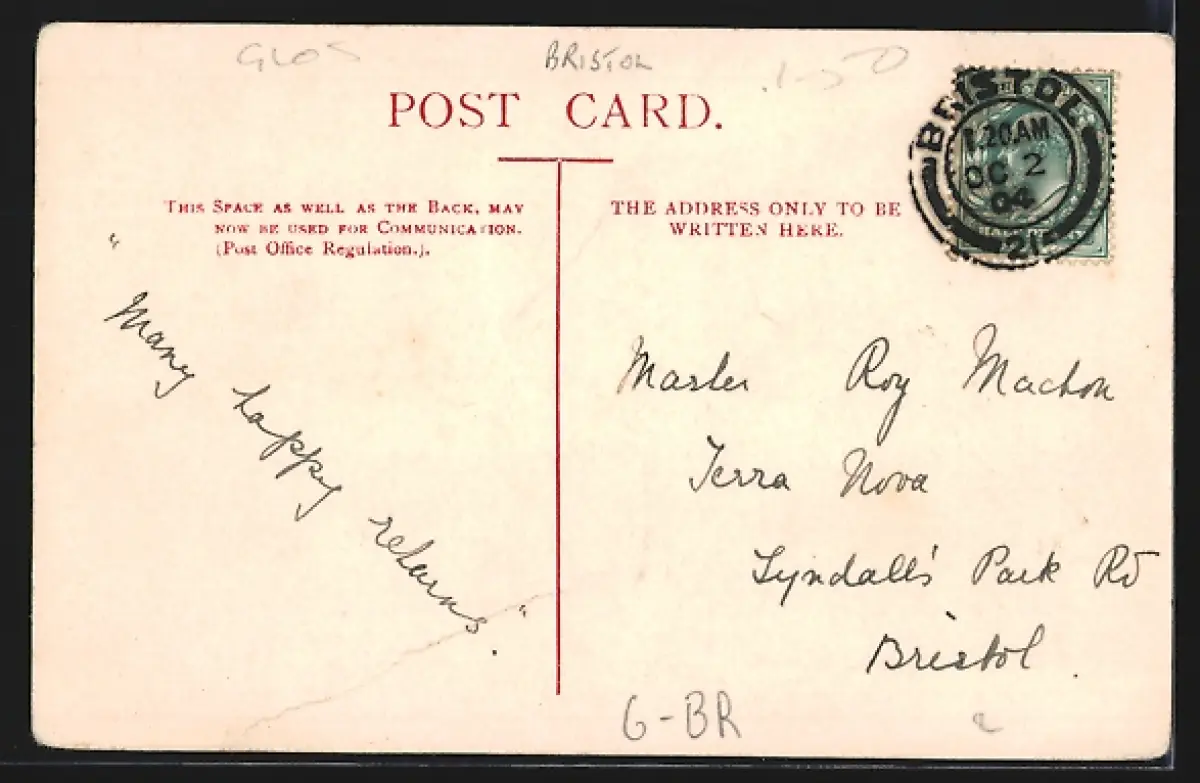 GLOS BRISTOL 1-50
POST CARD.
THIS SPACE AS WELL AS THE BACK, MAY
NOW BE USED FOR COMMUNICATION.
(Post Office Regulation.).
THE ADDRESS ONLY TO BE
WRITTEN HERE.
BRISTOL
.20AM
OC 2
04
21
"Many happy returns."
Master Roy Machon
Terra Nova
Lyndall's Park Rd
Bristol.
G-BR